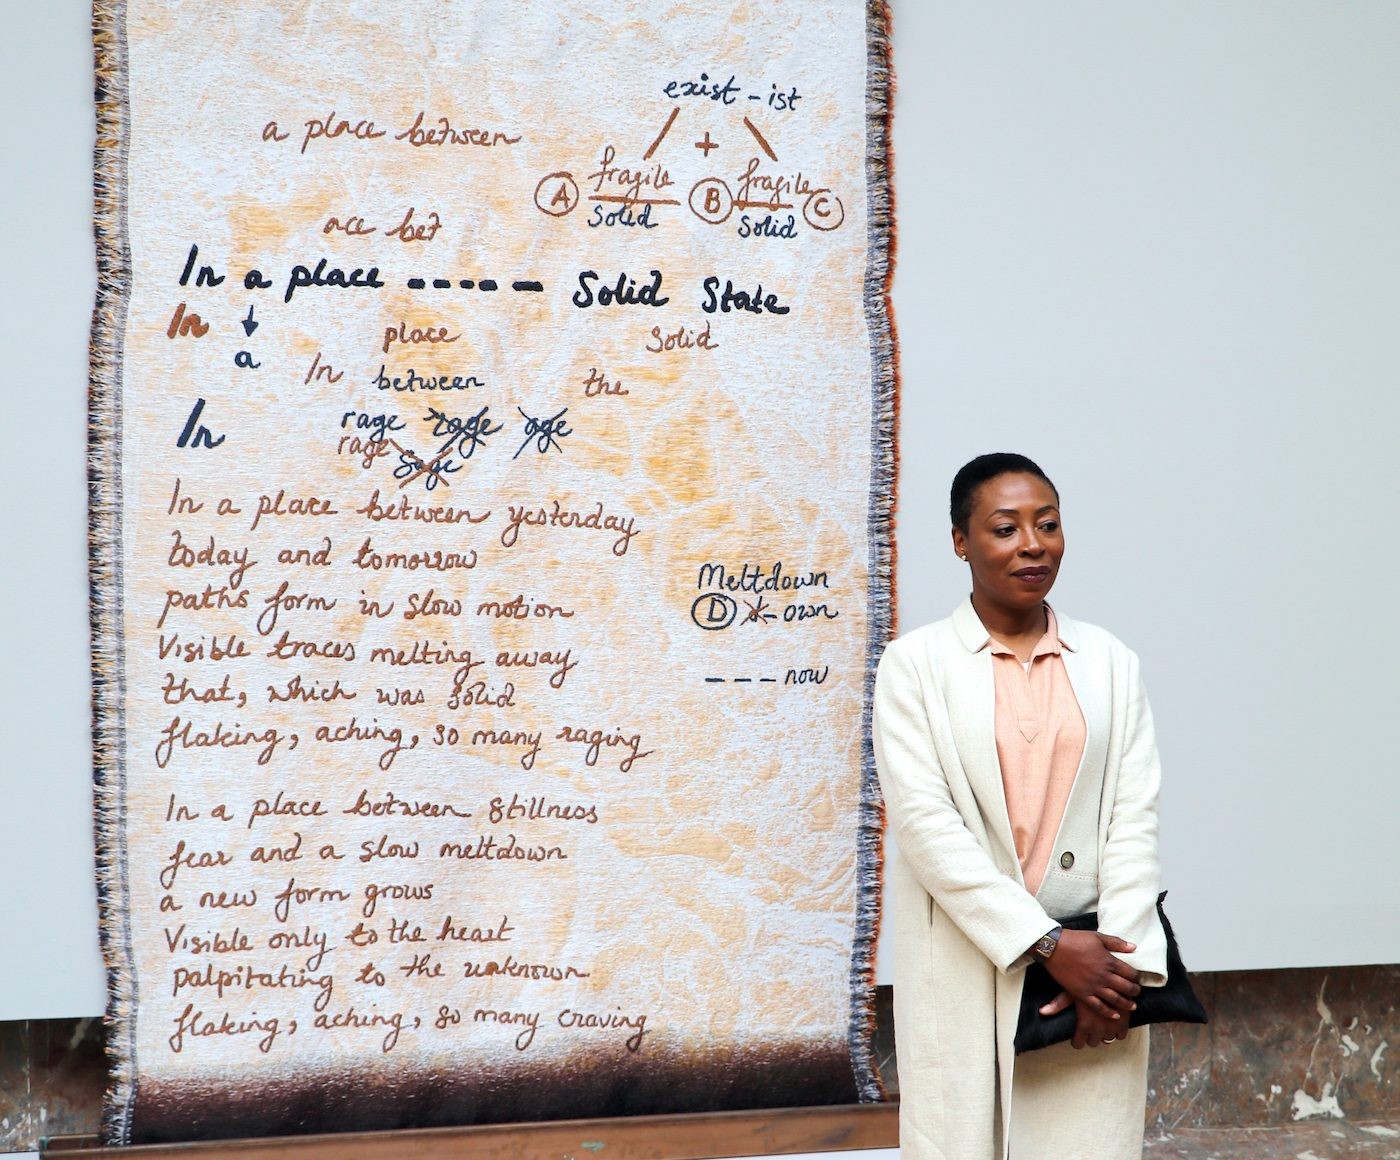 exist - ist
a place between
+
fragile fragile
A B C
Solid Solid
ace bet
In a place ----- Solid State
In ↓ place Solid
a In between the
In rage rage age
rage sage
In a place between yesterday
today and tomorrow
paths form in slow motion
Visible traces melting away
that, which was solid
flaking, aching, so many raging
Meltdown
D d-own
--- now
In a place between stillness
fear and a slow meltdown
a new form grows
Visible only to the heart
palpitating to the unknown
flaking, aching, so many craving